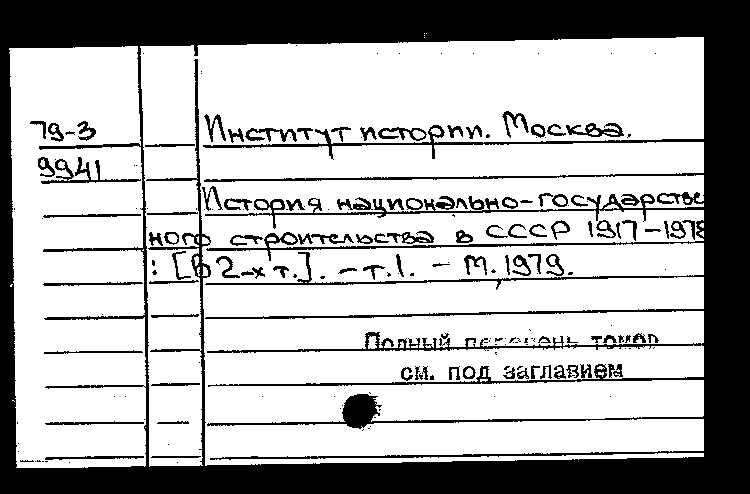 79-3
9941
Институт истории. Москва.
История национально-государствен
ного строительства в СССР 1917-1978
: [В 2-х т.]. - т.1. - М., 1979.
Полный перечень томов
см. под заглавием